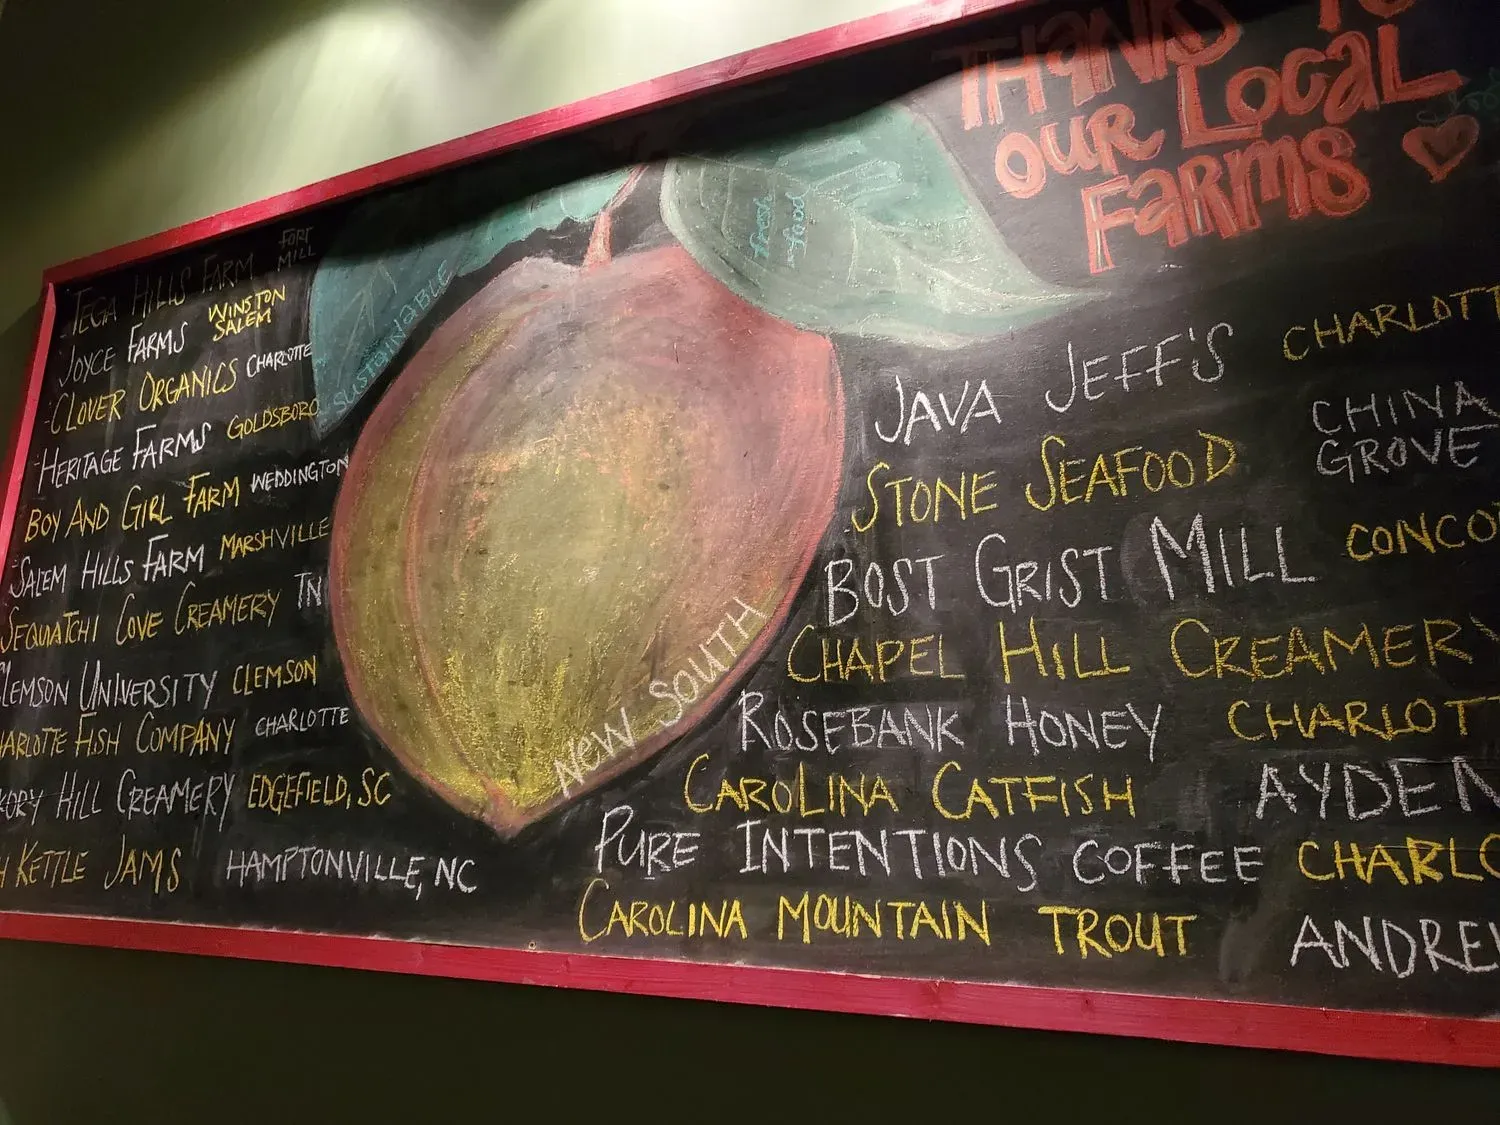 THANKS TO
OUR LOCAL
FARMS
FRESH
FOOD
SUSTAINABLE
NEW SOUTH
TEGA HILLS FARM FORT MILL
JOYCE FARMS WINSTON SALEM
CLOVER ORGANICS CHARLOTTE
HERITAGE FARMS GOLDSBORO
BOY AND GIRL FARM WEDDINGTON
SALEM HILLS FARM MARSHVILLE
SEQUATCHI COVE CREAMERY TN
CLEMSON UNIVERSITY CLEMSON
HARLOTTE FISH COMPANY CHARLOTTE
KORY HILL CREAMERY EDGEFIELD, SC
H KETTLE JAMS HAMPTONVILLE, NC
JAVA JEFF'S CHARLOTT
STONE SEAFOOD CHINA GROVE
BOST GRIST MILL CONCO
CHAPEL HILL CREAMERY
ROSEBANK HONEY CHARLOT
CAROLINA CATFISH AYDEN
PURE INTENTIONS COFFEE CHARLO
CAROLINA MOUNTAIN TROUT ANDREW